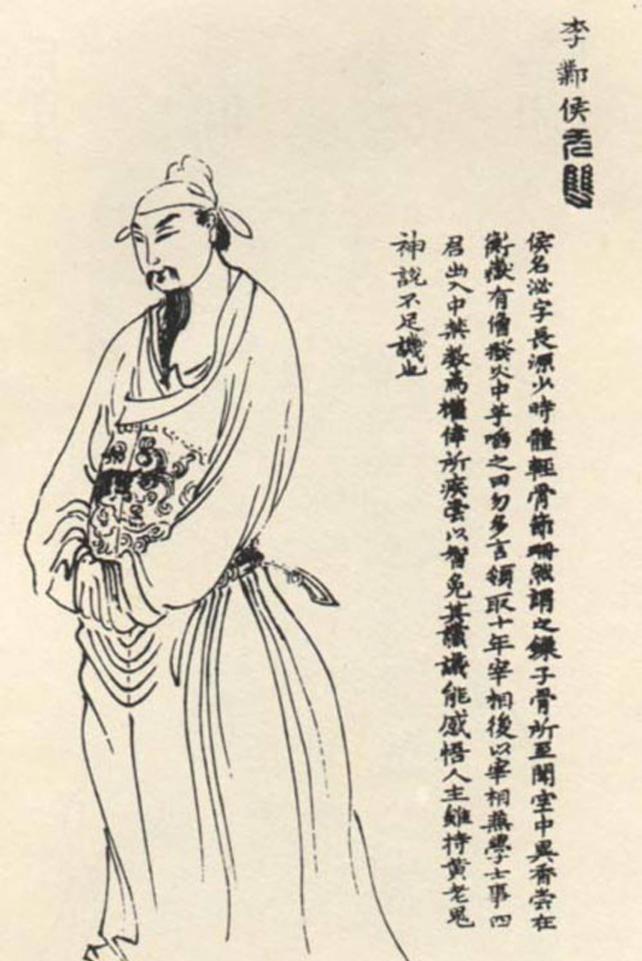 李鄴侯
无雙
侯名泌字長源少時體輕骨節珊然謂之鏁子骨所至聞空中異香嘗在
衡嶽有僧撥火中芋啗之曰勿多言領取十年宰相後以宰相兼學士事四
君出入中禁數為權倖所疾常以智免其讜議能感悟人主雖持黃老鬼
神說不足譏也